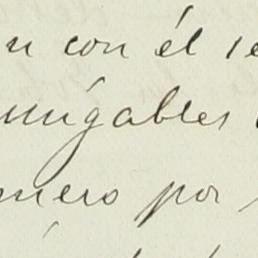 n con él se
unígables
mero por